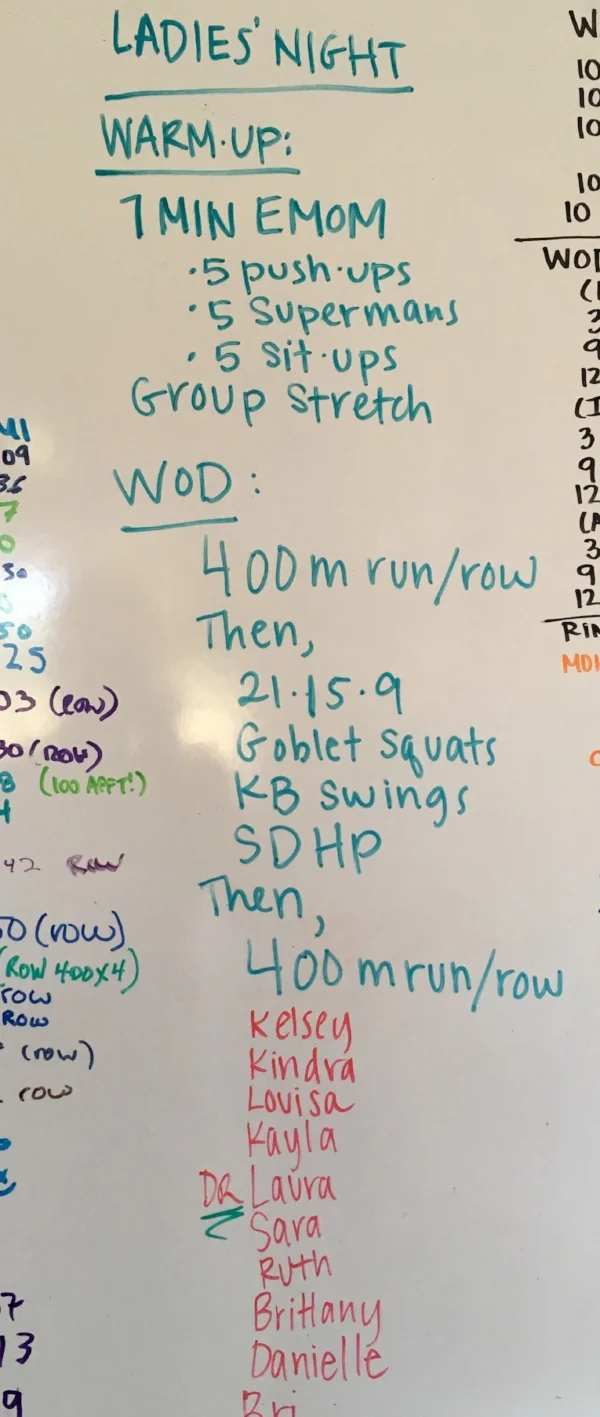 LADIES' NIGHT
WARM-UP:
7 MIN EMOM
· 5 push-ups
· 5 Supermans
· 5 sit-ups
Group Stretch
WOD:
400m run/row
Then,
21-15-9
Goblet Squats
KB Swings
SDHP
Then,
400m run/row
Kelsey
Kindra
Louisa
Kayla
Laura
Sara
Ruth
Brittany
Danielle
Bri
09
36
7
0
50
50
25
03 (ROW)
30 (ROW)
8 (100 APFT!)
4
42 ROW
50 (row)
(ROW 400x4)
row
ROW
(row)
row
7
13
9
W
10
10
10
10
10
WOD
3
9
12
(I
3
9
12
(A
3
9
12
RIN